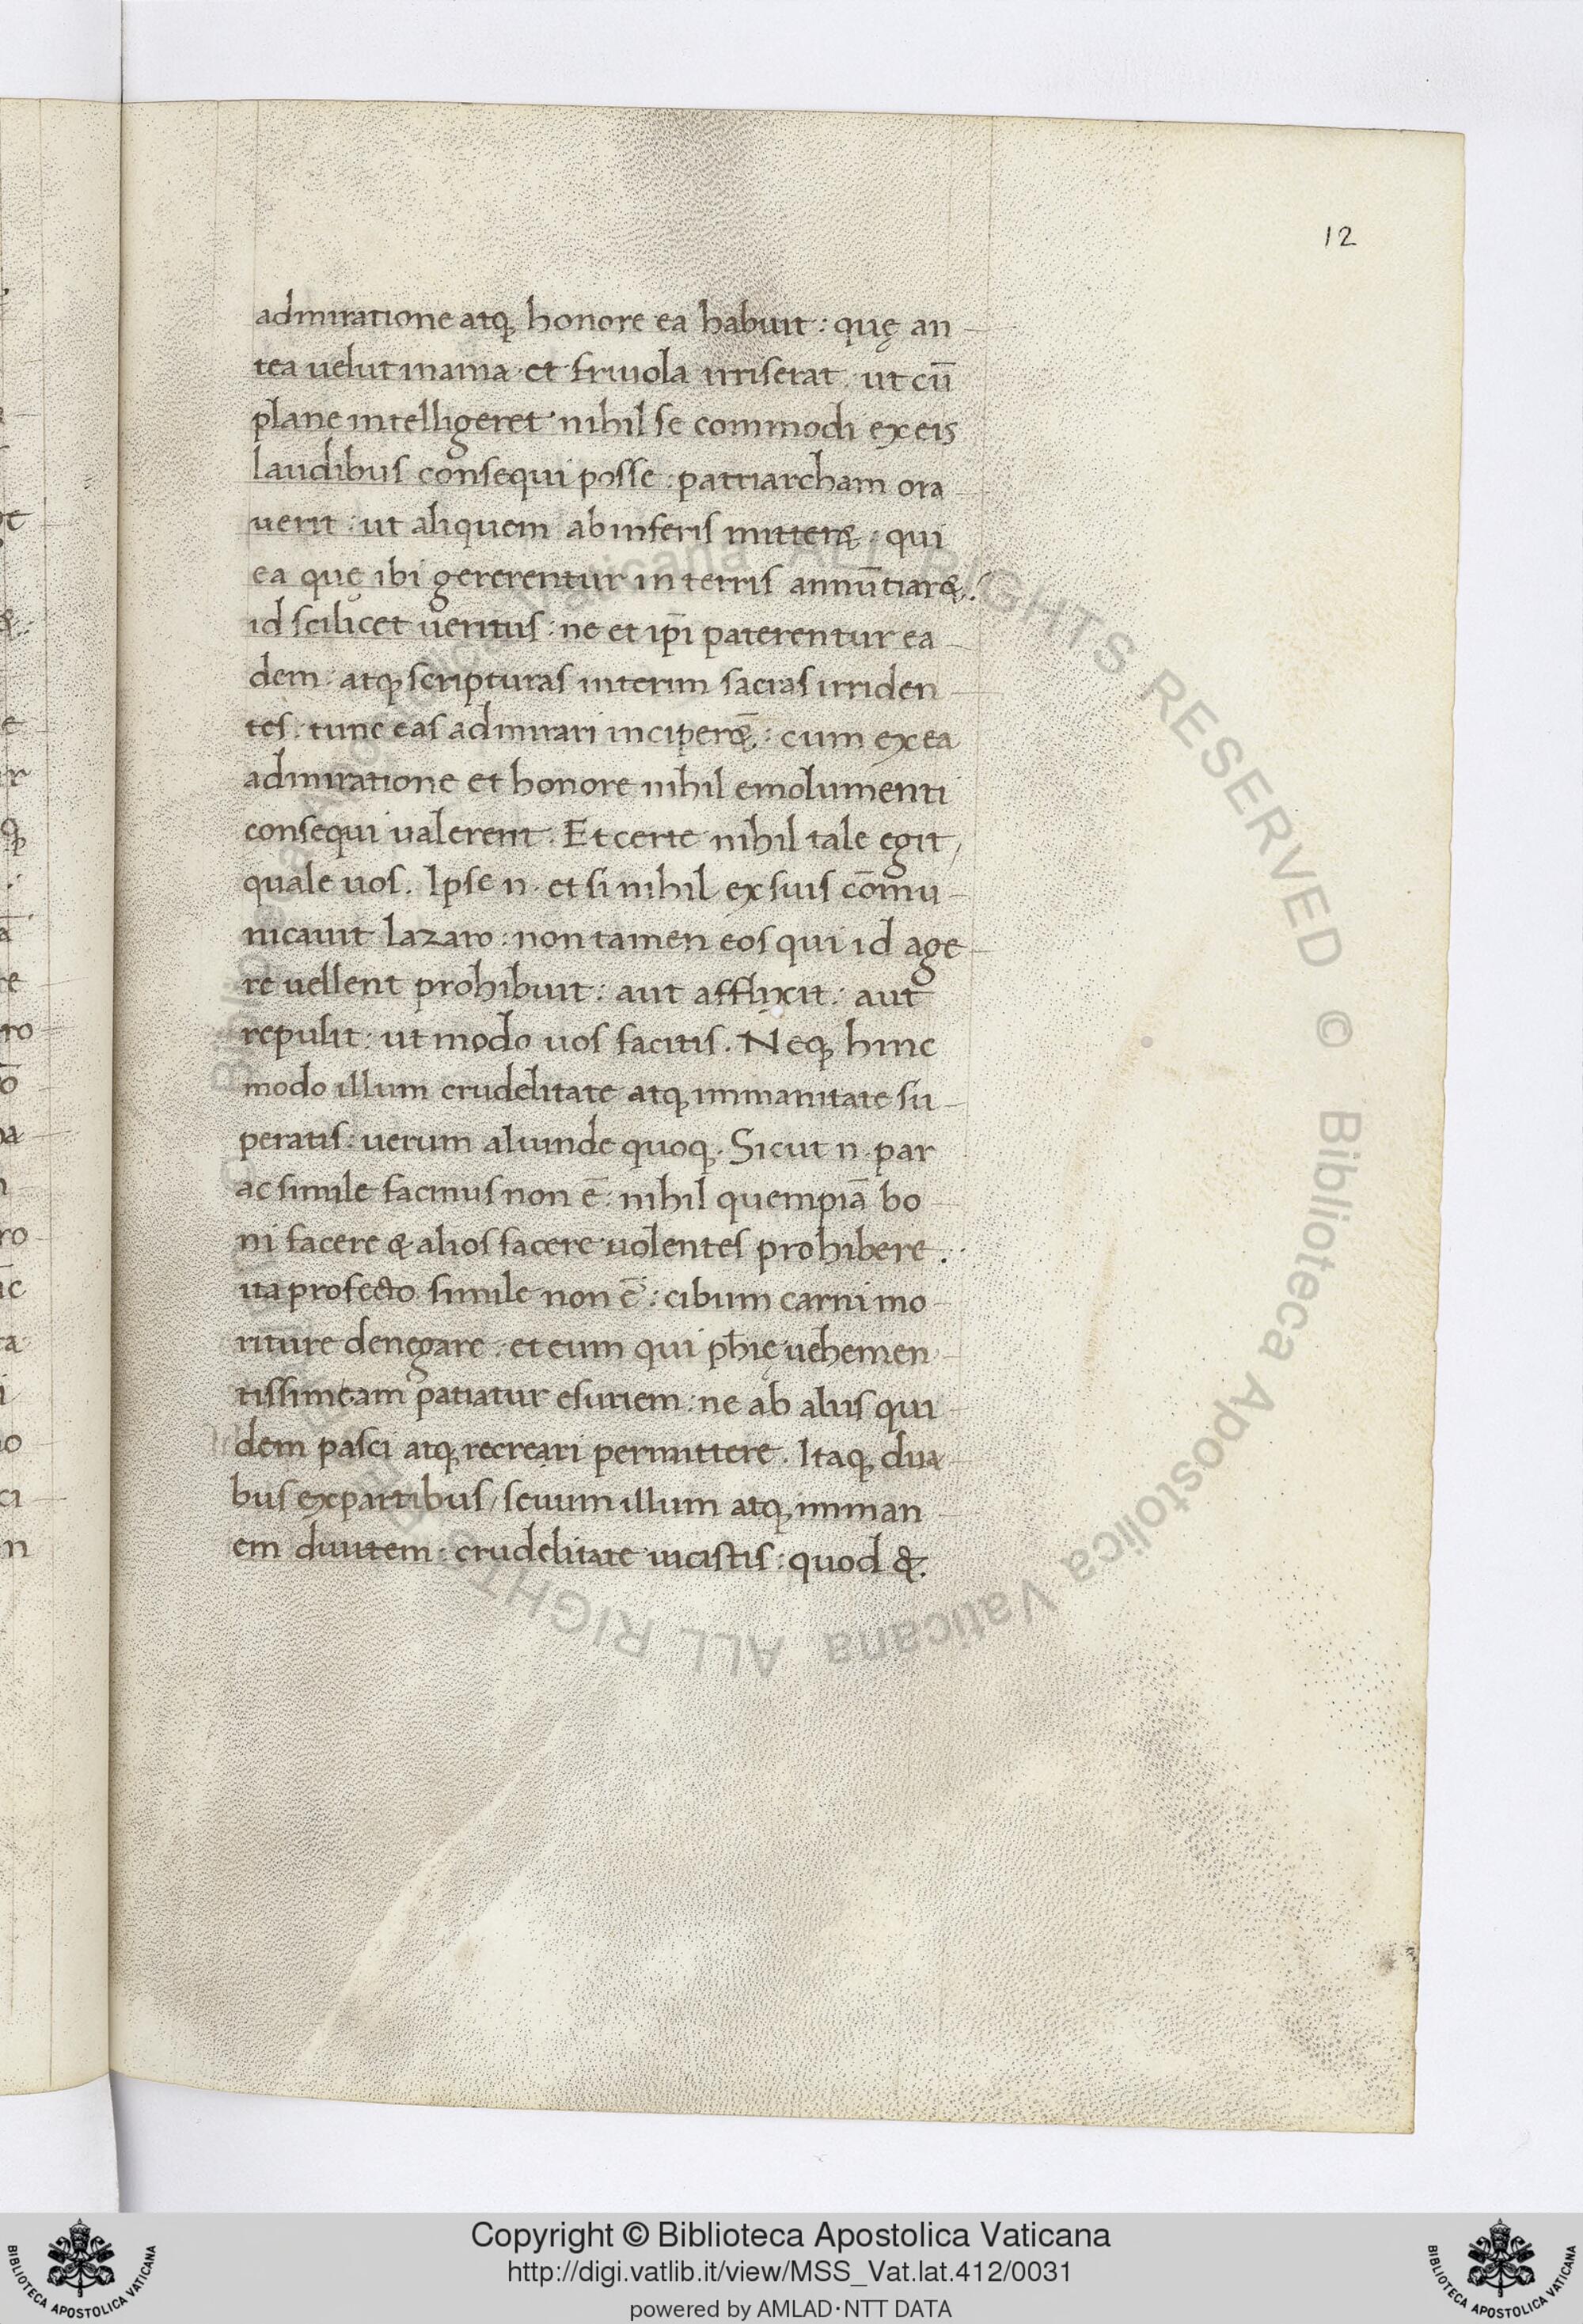 12
admiratione atq; honore ea habuit : quę an-
tea uelut inania et friuola irriserat : ut cū
plane intelligeret nihil se commodi ex eis
laudibus consequi posse : patriarcham ora-
uerit : ut aliquem ab inferis mitter& : qui
ea quę ibi gererentur in terris annūtiar& :
id scilicet ueritus : ne et ip̄i paterentur ea-
dem : atq; scripturas interim sacras irriden-
tes : tunc eas admirari inciper&̄ : cum ex ea
admiratione et honore nihil emolumenti
consequi ualerent . Et certe nihil tale egit /
quale uos . Ipse n . et si nihil ex suis cōmu-
nicauit lazaro : non tamen eos qui id age-
re uellent prohibuit : aut afflixit : aut
repulit : ut modo uos facitis . Neq; hinc
modo illum crudelitate atq; immanitate su-
peratis : uerum aliunde quoq; . Sicut n . par
ac simile facinus non ē : nihil quempiā bo-
ni facere & alios facere uolentes prohibere .
ita profecto simile non ē : cibum carni mo-
riture denegare : et eum qui ph̄ię uehemen-
tissimeam patiatur esuriem : ne ab aliis qui-
dem pasci atq; recreari permittere . Itaq; dua-
bus ex partibus / seuum illum atq; imman-
em diuitem : crudelitate uicistis : quod & .
© Biblioteca Apostolica Vaticana ALL RIGHTS RESERVED
© Biblioteca Apostolica Vaticana ALL RIGHTS
Copyright © Biblioteca Apostolica Vaticana
http://digi.vatlib.it/view/MSS_Vat.lat.412/0031
powered by AMLAD·NTT DATA
BIBLIOTECA APOSTOLICA VATICANA
BIBLIOTECA APOSTOLICA VATICANA